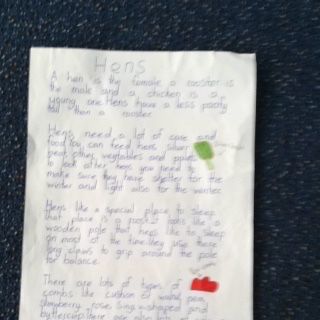 Hens
A hen is the female a rooster is
the male and a chicken is a
young one Hens have a less
tail than a rooster
Hens need a lot of care and
food You can feed hens silver
beat other vegtables and
to look after hens you need to
make sure they have shelter for the
winter and light also for the
Hens like a special place to sleep
that place is a looks like a
wooden pole that hens like to sleep
on most of the time. they use there
long claws to grip around the pole
for balance.
There are lots of types of
combs like cushion walnut, pea,
rose, Single, v-shaped and
buttercup. There are also lots of